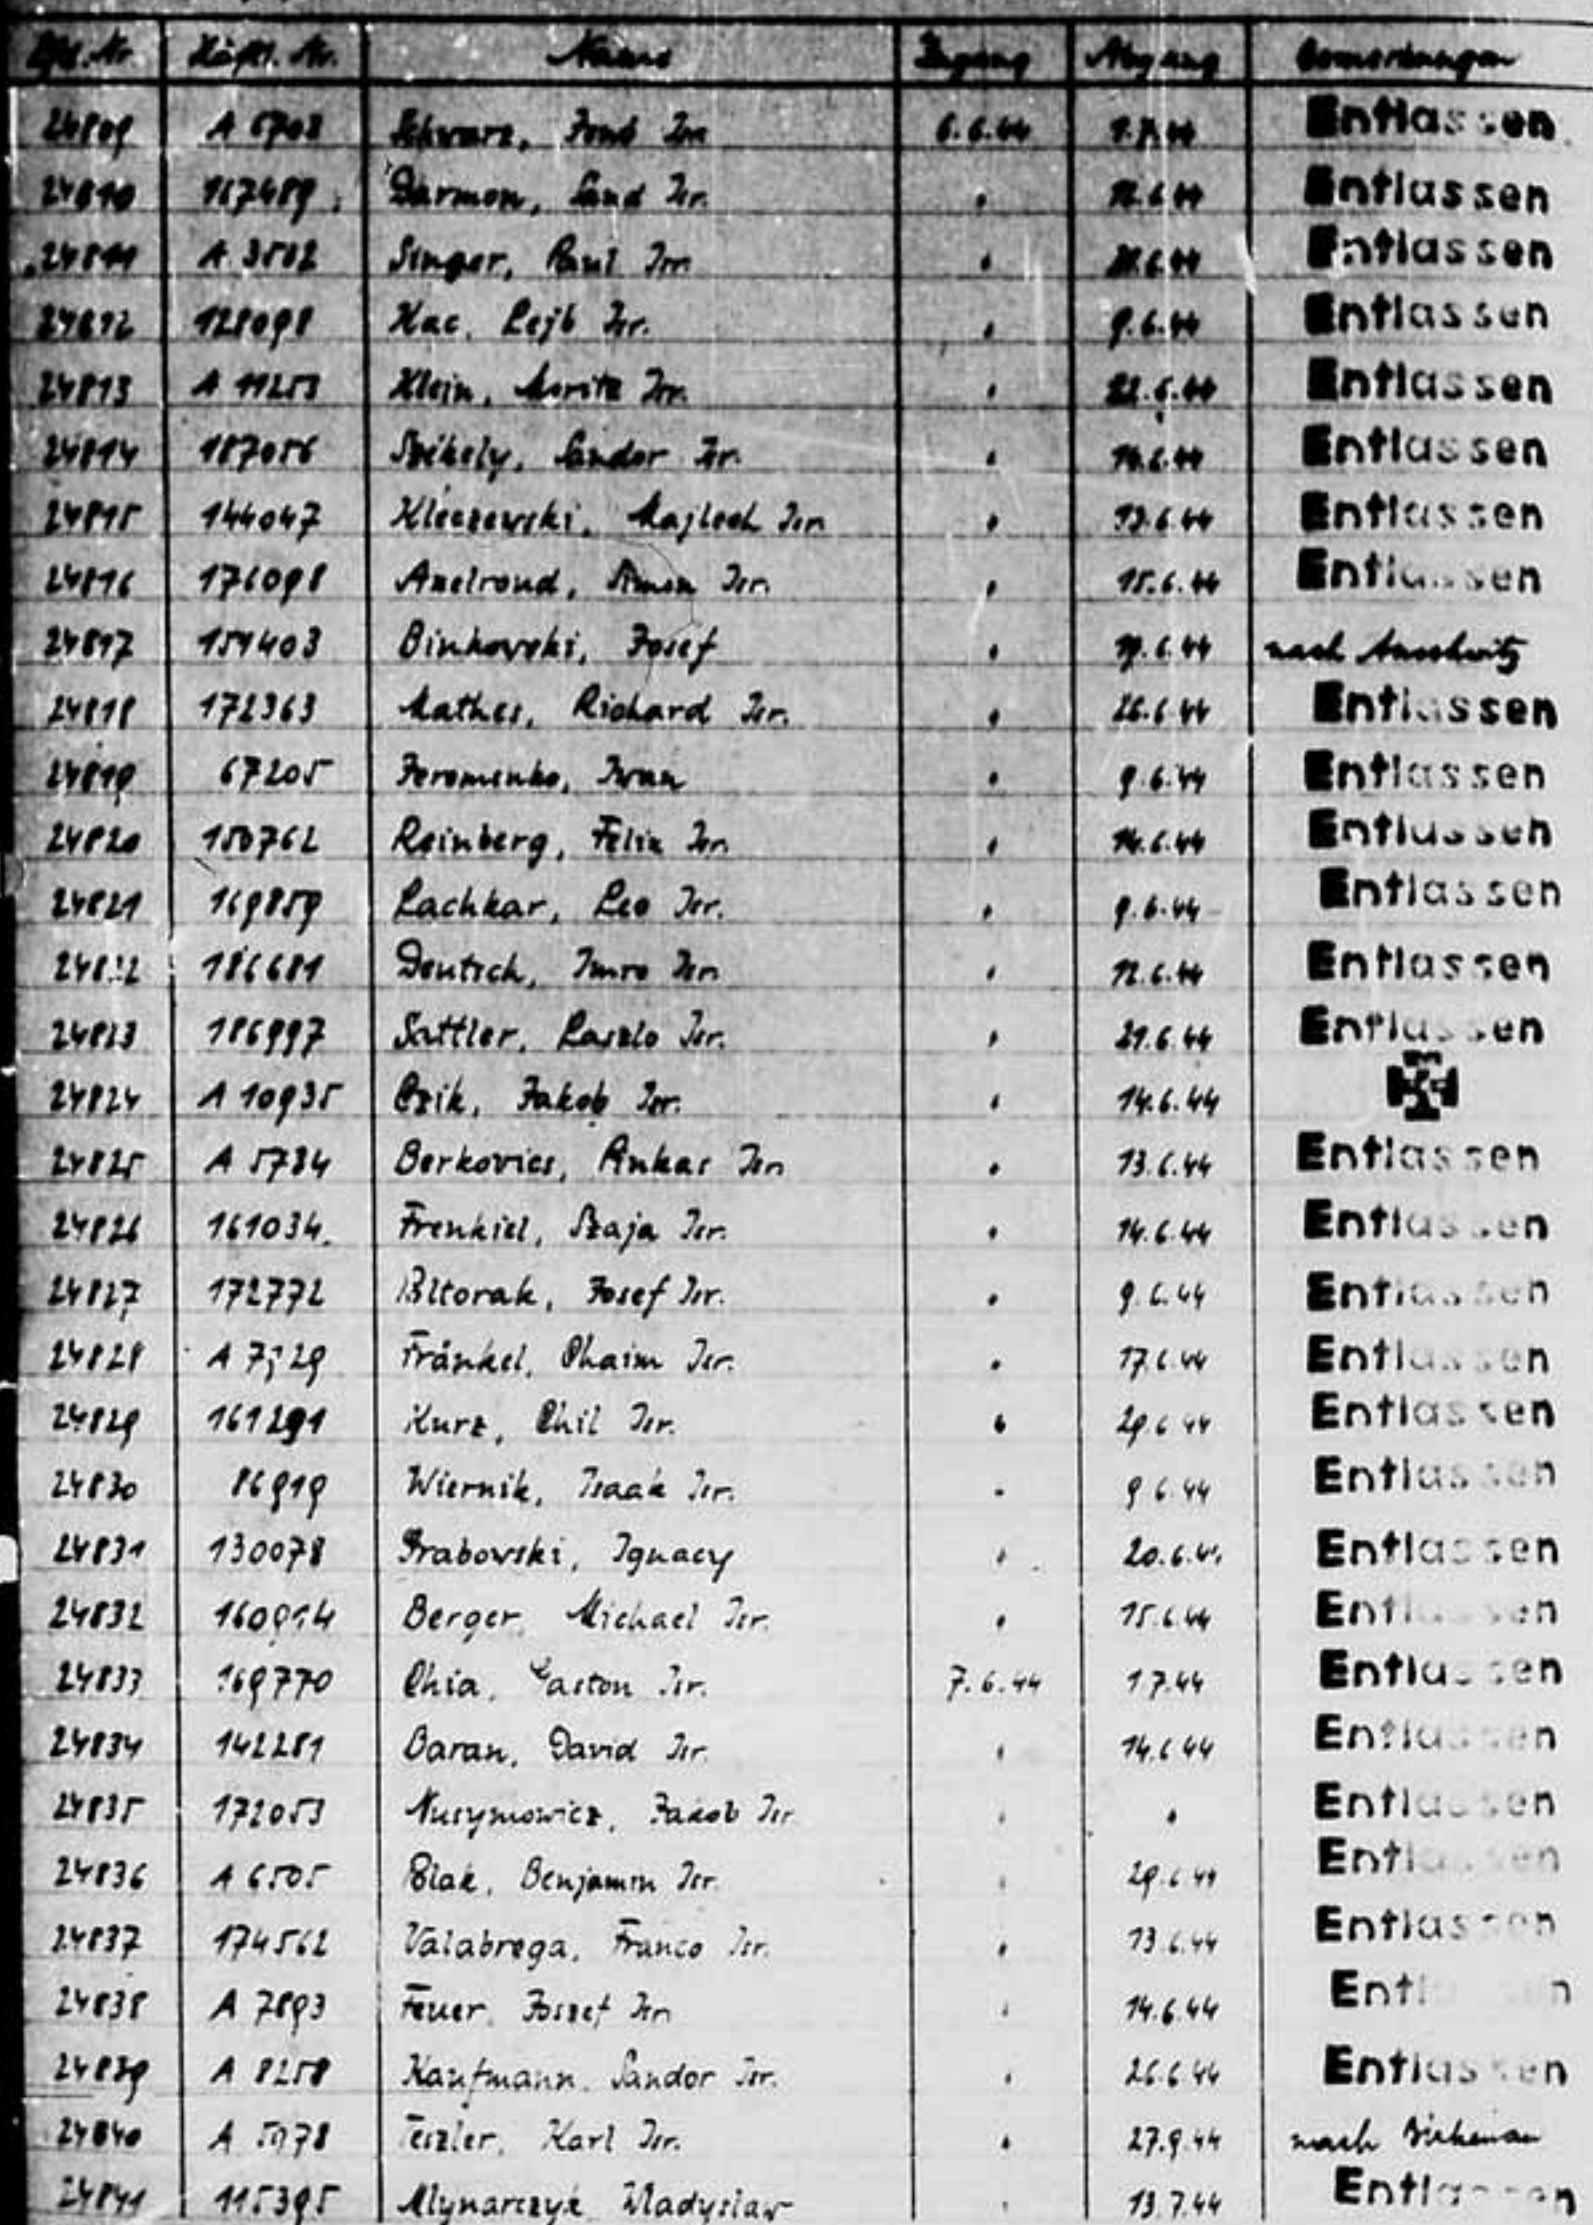 Lfd. Nr. Häftl. Nr. Name Zugang Abgang Bemerkungen
24809 A 6.6.44 Entlassen
24810 167489 Darmon, Isr. " 12.6.44 Entlassen
24811 A 3502 Singer, Paul Isr. " Entlassen
24812 128098 Kac, Lejb Isr. " 9.6.44 Entlassen
24813 A 11253 Klein, Moritz Isr. " 22.6.44 Entlassen
24814 187056 Székely, Sandor Isr. " 14.6.44 Entlassen
24815 144047 Kleczewski, Majloch Isr. " 13.6.44 Entlassen
24816 176098 Axelroud, Simon Isr. " 15.6.44 Entlassen
24817 151403 Binkovski, Josef " 19.6.44 nach Auschwitz
24818 172363 Mathes, Richard Isr. " 26.6.44 Entlassen
24819 67205 Jeromenko, Iwan " 9.6.44 Entlassen
24820 150762 Reinberg, Felix Isr. " 14.6.44 Entlassen
24821 169859 Lachkar, Leo Isr. " 9.6.44 Entlassen
24822 186681 Deutsch, Imre Isr. " 12.6.44 Entlassen
24823 186997 Sattler, Laszlo Isr. " 21.6.44 Entlassen
24824 A 10935 Czik, Jakob Isr. " 14.6.44
24825 A 5784 Berkovics, Isr. " 13.6.44 Entlassen
24826 161034 Frenkiel, Szaja Isr. " 14.6.44 Entlassen
24827 172772 Josef Isr. " 9.6.44 Entlassen
24828 Fränkel, Chaim Isr. " 17.6.44 Entlassen
24829 161291 Kurz, Chil Isr. " 29.6.44 Entlassen
24830 86919 Wiernik, Isaak Isr. " 9.6.44 Entlassen
24831 130078 Grabovski, Ignacy " 20.6.44 Entlassen
24832 160914 Berger, Michael Isr. " 15.6.44 Entlassen
24833 169770 Chia, Gaston Isr. 7.6.44 1.7.44 Entlassen
24834 142281 Baran, David Isr. " 14.6.44 Entlassen
24835 172053 Nusymowicz, Jakob Isr. " " Entlassen
24836 A 6505 Blak, Benjamin Isr. " 29.6.44 Entlassen
24837 174562 Valabrega, Franco Isr. " 13.6.44 Entlassen
24838 A 7893 Feuer, Joszef Isr. " 14.6.44 Entlassen
24839 A 8258 Kaufmann, Sandor Isr. " 26.6.44 Entlassen
24840 A 5978 Teszler, Karl Isr. " 27.9.44 nach Birkenau
24841 115395 Mlynarczyk, Wladyslaw " 13.7.44 Entlassen